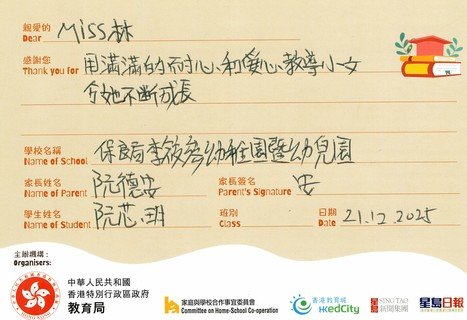 親愛的 Miss林
Dear
感謝您 用滿滿的耐心和愛心教導小女
Thank you for
令她不斷成長
學校名稱 保良局李筱彥幼稚園暨幼兒園
Name of School
家長姓名 阮德安 家長簽名 安
Name of Parent Parent's Signature
學生姓名 阮芯玥 班別 日期 21.12.2025
Name of Student Class Date
主辦機構:
Organisers:
中華人民共和國
香港特別行政區政府
教育局
家庭與學校合作事宜委員會
Committee on Home-School Co-operation
香港教育城
HKedCity
星島 SING TAO
新聞集團
星島日報